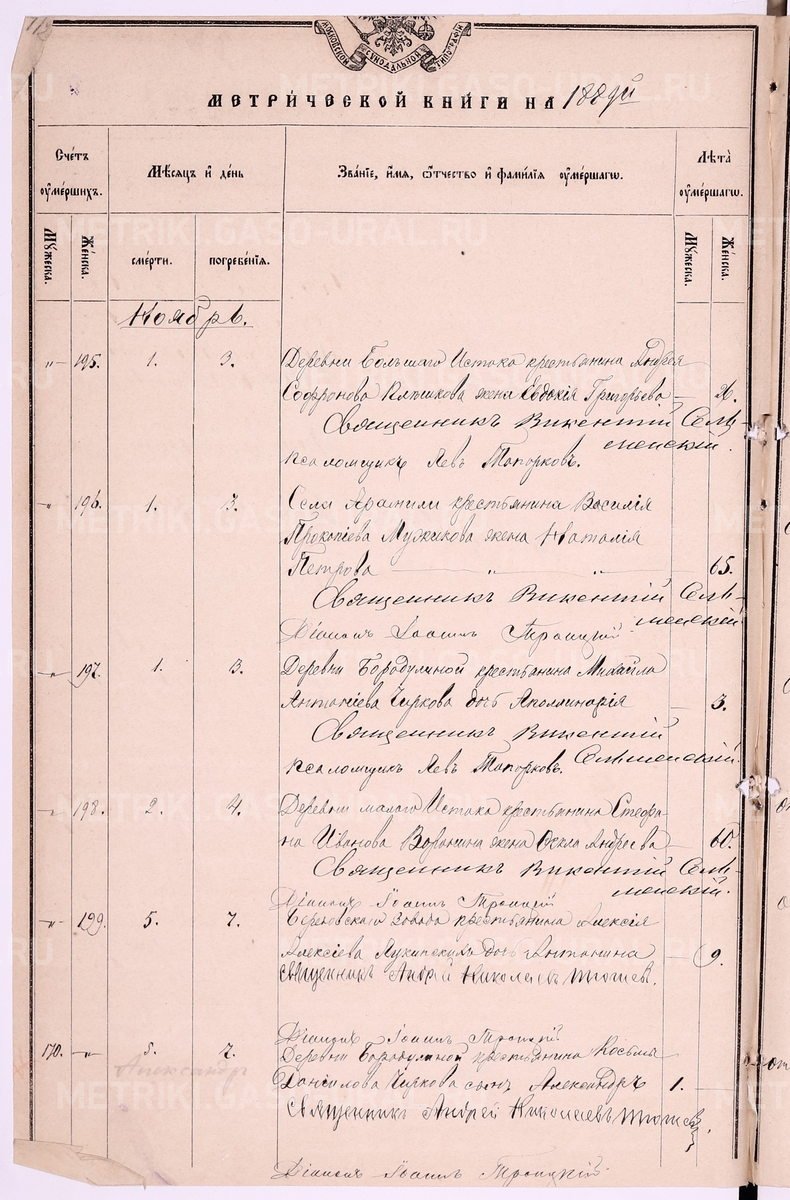 112
МОСКОВСКОЙ СѴНОДАЛЬНОЙ ТИПОГРАФІИ
МЕТРИЧЕСКОЙ КНИГИ НА 1889й
Счетъ оумершихъ.
Мѣсяцъ и день
Званіе, имя, отчество и фамилія оумершагѡ.
Лѣта оумершагѡ.
Мужеска.
Женска.
смерти.
погребенія.
Мужеска.
Женска.
Ноябрь.
" 195. 1. 3. Деревни Большаго Истока крестьянина Андрея
Софронова жена Евдокія Григорьева —
Священникъ Викентій Селт-
менскій.
Псаломщикъ Левъ Топорковъ.
" 196. 1. 3. Села Арамили крестьянина Василія
Прокопіева Мужикова жена Наталія
Петрова — " — " — 65.
Священникъ Викентій Селт-
менскій
Діаконъ Іоаннъ Троицкій
" 197. 1. 3. Деревни Бородулиной крестьянина Михаила
Антоніева Чиркова дочь Аполлинарія — 3.
Священникъ Викентій
Псаломщикъ Левъ Топорковъ.
" 198. 2. 4. Деревни малаго Истока крестьянина Стефа-
на Иванова Воронина жена Ѳекла Андреева — 60.
Священникъ Викентій Селт-
менскій.
Діаконъ Іоаннъ Троицкій
" 199. 5. 7. завода крестьянина Алексія
Алексіева дочь Антонина — 9.
Священникъ Андрей Николаевъ
Діаконъ Іоаннъ Троицкій
170. " 5. 7. Деревни Бородулиной крестьянина Косьмы
Александръ
Даніилова Чиркова сынъ Александръ 1. —
Священникъ Андрей Николаевъ
Діаконъ Іоаннъ Троицкій
METRIKI.GASO-URAL.RU